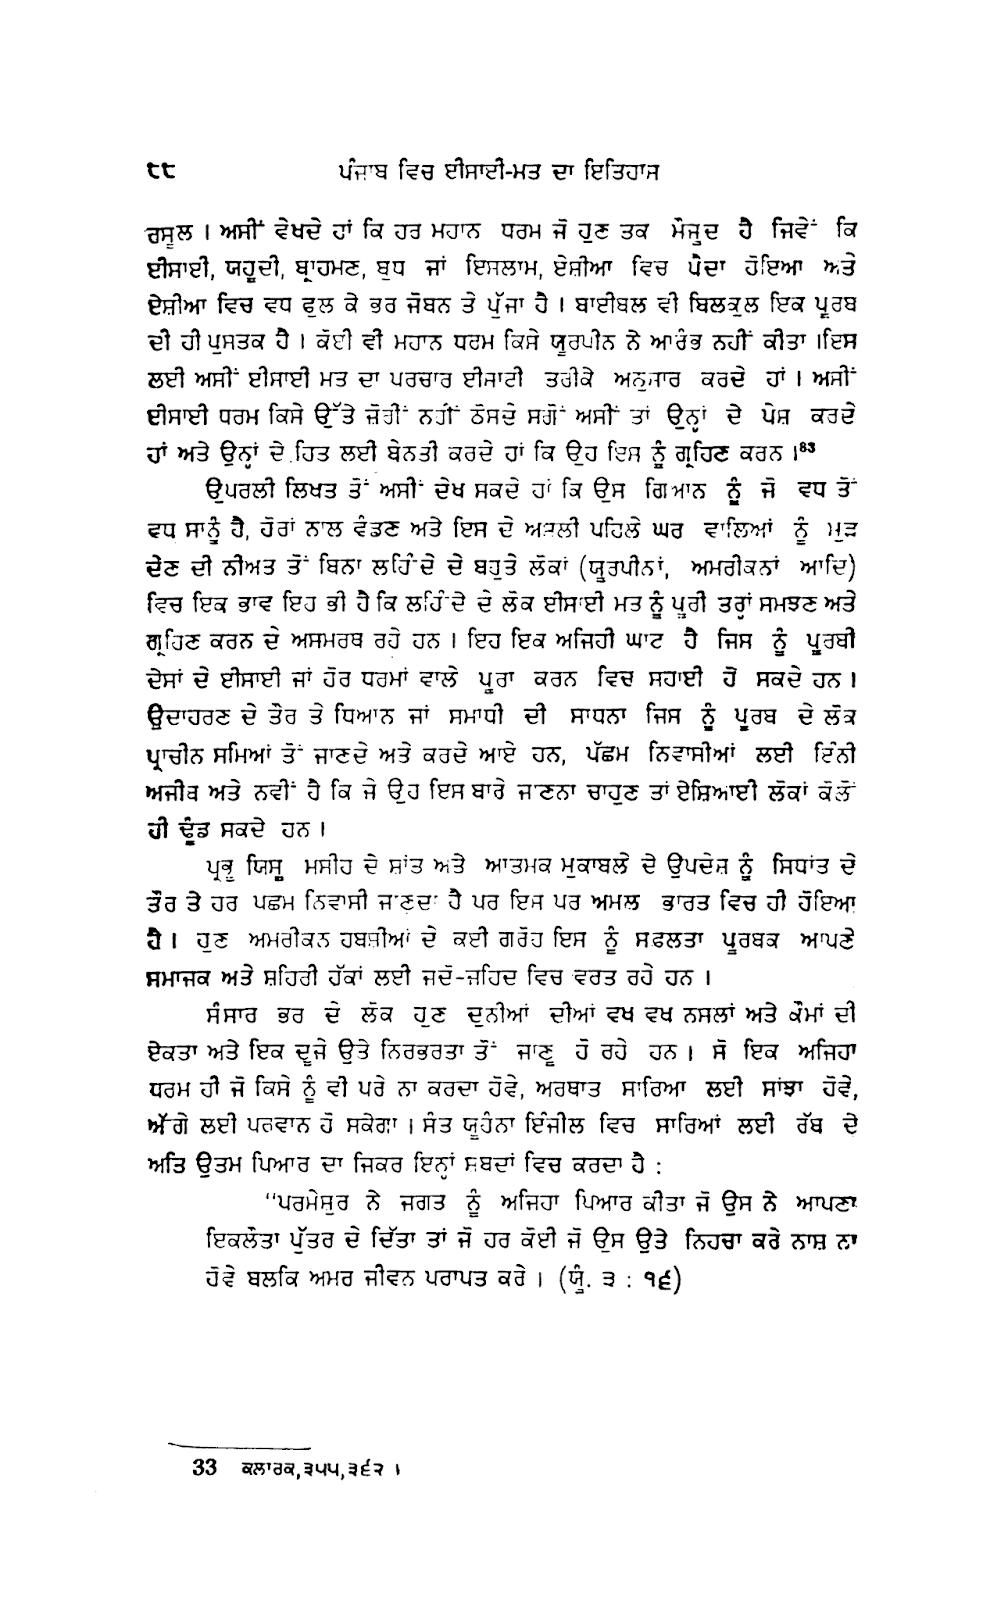 ੮੮ ਪੰਜਾਬ ਵਿਚ ਈਸਾਈ-ਮਤ ਦਾ ਇਤਿਹਾਸ
ਰਸੂਲ । ਅਸੀਂ ਵੇਖਦੇ ਹਾਂ ਕਿ ਹਰ ਮਹਾਨ ਧਰਮ ਜੋ ਹੁਣ ਤਕ ਮੌਜੂਦ ਹੈ ਜਿਵੇਂ ਕਿ
ਈਸਾਈ, ਯਹੂਦੀ, ਬ੍ਰਾਹਮਣ, ਬੁਧ ਜਾਂ ਇਸਲਾਮ, ਏਸ਼ੀਆ ਵਿਚ ਪੈਦਾ ਹੋਇਆ ਅਤੇ
ਏਸ਼ੀਆ ਵਿਚ ਵਧ ਫੁਲ ਕੇ ਭਰ ਜੋਬਨ ਤੇ ਪੁੱਜਾ ਹੈ । ਬਾਈਬਲ ਵੀ ਬਿਲਕੁਲ ਇਕ ਪੂਰਬ
ਦੀ ਹੀ ਪੁਸਤਕ ਹੈ । ਕੋਈ ਵੀ ਮਹਾਨ ਧਰਮ ਕਿਸੇ ਯੂਰਪੀਨ ਨੇ ਆਰੰਭ ਨਹੀਂ ਕੀਤਾ ।ਇਸ
ਲਈ ਅਸੀਂ ਈਸਾਈ ਮਤ ਦਾ ਪਰਚਾਰ ਈਸਾਈ ਤਰੀਕੇ ਅਨੁਸਾਰ ਕਰਦੇ ਹਾਂ । ਅਸੀਂ
ਈਸਾਈ ਧਰਮ ਕਿਸੇ ਉੱਤੇ ਜ਼ੋਰੀਂ ਨਹੀਂ ਠੋਸਦੇ ਸਗੋਂ ਅਸੀਂ ਤਾਂ ਉਨ੍ਹਾਂ ਦੇ ਪੇਸ਼ ਕਰਦੇ
ਹਾਂ ਅਤੇ ਉਨ੍ਹਾਂ ਦੇ ਹਿਤ ਲਈ ਬੇਨਤੀ ਕਰਦੇ ਹਾਂ ਕਿ ਉਹ ਇਸ ਨੂੰ ਗ੍ਰਹਿਣ ਕਰਨ ।83
ਉਪਰਲੀ ਲਿਖਤ ਤੋਂ ਅਸੀਂ ਦੇਖ ਸਕਦੇ ਹਾਂ ਕਿ ਉਸ ਗਿਆਨ ਨੂੰ ਜੋ ਵਧ ਤੋਂ
ਵਧ ਸਾਨੂੰ ਹੈ, ਹੋਰਾਂ ਨਾਲ ਵੰਡਣ ਅਤੇ ਇਸ ਦੇ ਅਸਲੀ ਪਹਿਲੇ ਘਰ ਵਾਲਿਆਂ ਨੂੰ ਮੁੜ
ਦੇਣ ਦੀ ਨੀਅਤ ਤੋਂ ਬਿਨਾ ਲਹਿੰਦੇ ਦੇ ਬਹੁਤੇ ਲੋਕਾਂ (ਯੂਰਪੀਨਾਂ, ਅਮਰੀਕਨਾਂ ਆਦਿ)
ਵਿਚ ਇਕ ਭਾਵ ਇਹ ਭੀ ਹੈ ਕਿ ਲਹਿੰਦੇ ਦੇ ਲੋਕ ਈਸਾਈ ਮਤ ਨੂੰ ਪੂਰੀ ਤਰ੍ਹਾਂ ਸਮਝਣ ਅਤੇ
ਗ੍ਰਹਿਣ ਕਰਨ ਦੇ ਅਸਮਰਥ ਰਹੇ ਹਨ । ਇਹ ਇਕ ਅਜਿਹੀ ਘਾਟ ਹੈ ਜਿਸ ਨੂੰ ਪੂਰਬੀ
ਦੇਸਾਂ ਦੇ ਈਸਾਈ ਜਾਂ ਹੋਰ ਧਰਮਾਂ ਵਾਲੇ ਪੂਰਾ ਕਰਨ ਵਿਚ ਸਹਾਈ ਹੋ ਸਕਦੇ ਹਨ ।
ਉਦਾਹਰਣ ਦੇ ਤੌਰ ਤੇ ਧਿਆਨ ਜਾਂ ਸਮਾਧੀ ਦੀ ਸਾਧਨਾ ਜਿਸ ਨੂੰ ਪੂਰਬ ਦੇ ਲੋਕ
ਪ੍ਰਾਚੀਨ ਸਮਿਆਂ ਤੋਂ ਜਾਣਦੇ ਅਤੇ ਕਰਦੇ ਆਏ ਹਨ, ਪੱਛਮ ਨਿਵਾਸੀਆਂ ਲਈ ਇੰਨੀ
ਅਜੀਬ ਅਤੇ ਨਵੀਂ ਹੈ ਕਿ ਜੇ ਉਹ ਇਸ ਬਾਰੇ ਜਾਣਨਾ ਚਾਹੁਣ ਤਾਂ ਏਸ਼ਿਆਈ ਲੋਕਾਂ ਕੋਲੋਂ
ਹੀ ਢੂੰਡ ਸਕਦੇ ਹਨ ।
ਪ੍ਰਭੂ ਯਿਸੂ ਮਸੀਹ ਦੇ ਸ਼ਾਂਤ ਅਤੇ ਆਤਮਕ ਮੁਕਾਬਲੇ ਦੇ ਉਪਦੇਸ਼ ਨੂੰ ਸਿਧਾਂਤ ਦੇ
ਤੌਰ ਤੇ ਹਰ ਪਛਮ ਨਿਵਾਸੀ ਜਾਣਦਾ ਹੈ ਪਰ ਇਸ ਪਰ ਅਮਲ ਭਾਰਤ ਵਿਚ ਹੀ ਹੋਇਆ
ਹੈ । ਹੁਣ ਅਮਰੀਕਨ ਹਬਸ਼ੀਆਂ ਦੇ ਕਈ ਗਰੋਹ ਇਸ ਨੂੰ ਸਫਲਤਾ ਪੂਰਬਕ ਆਪਣੇ
ਸਮਾਜਕ ਅਤੇ ਸ਼ਹਿਰੀ ਹੱਕਾਂ ਲਈ ਜਦੋ-ਜਹਿਦ ਵਿਚ ਵਰਤ ਰਹੇ ਹਨ ।
ਸੰਸਾਰ ਭਰ ਦੇ ਲੋਕ ਹੁਣ ਦੁਨੀਆਂ ਦੀਆਂ ਵਖ ਵਖ ਨਸਲਾਂ ਅਤੇ ਕੌਮਾਂ ਦੀ
ਏਕਤਾ ਅਤੇ ਇਕ ਦੂਜੇ ਉਤੇ ਨਿਰਭਰਤਾ ਤੋਂ ਜਾਣੂ ਹੋ ਰਹੇ ਹਨ । ਸੋ ਇਕ ਅਜਿਹਾ
ਧਰਮ ਹੀ ਜੋ ਕਿਸੇ ਨੂੰ ਵੀ ਪਰੇ ਨਾ ਕਰਦਾ ਹੋਵੇ, ਅਰਥਾਤ ਸਾਰਿਆ ਲਈ ਸਾਂਝਾ ਹੋਵੇ,
ਅੱਗੇ ਲਈ ਪਰਵਾਨ ਹੋ ਸਕੇਗਾ । ਸੰਤ ਯੂਹੰਨਾ ਇੰਜੀਲ ਵਿਚ ਸਾਰਿਆਂ ਲਈ ਰੱਬ ਦੇ
ਅਤਿ ਉਤਮ ਪਿਆਰ ਦਾ ਜਿਕਰ ਇਨ੍ਹਾਂ ਸ਼ਬਦਾਂ ਵਿਚ ਕਰਦਾ ਹੈ :
“ਪਰਮੇਸੁਰ ਨੇ ਜਗਤ ਨੂੰ ਅਜਿਹਾ ਪਿਆਰ ਕੀਤਾ ਜੋ ਉਸ ਨੇ ਆਪਣਾ
ਇਕਲੌਤਾ ਪੁੱਤਰ ਦੇ ਦਿੱਤਾ ਤਾਂ ਜੋ ਹਰ ਕੋਈ ਜੋ ਉਸ ਉਤੇ ਨਿਹਚਾ ਕਰੇ ਨਾਸ਼ ਨਾ
ਹੋਵੇ ਬਲਕਿ ਅਮਰ ਜੀਵਨ ਪਰਾਪਤ ਕਰੇ । (ਯੂੰ. ੩ : ੧੬)
33 ਕਲਾਰਕ,੩੫੫,੩੬੨ ।